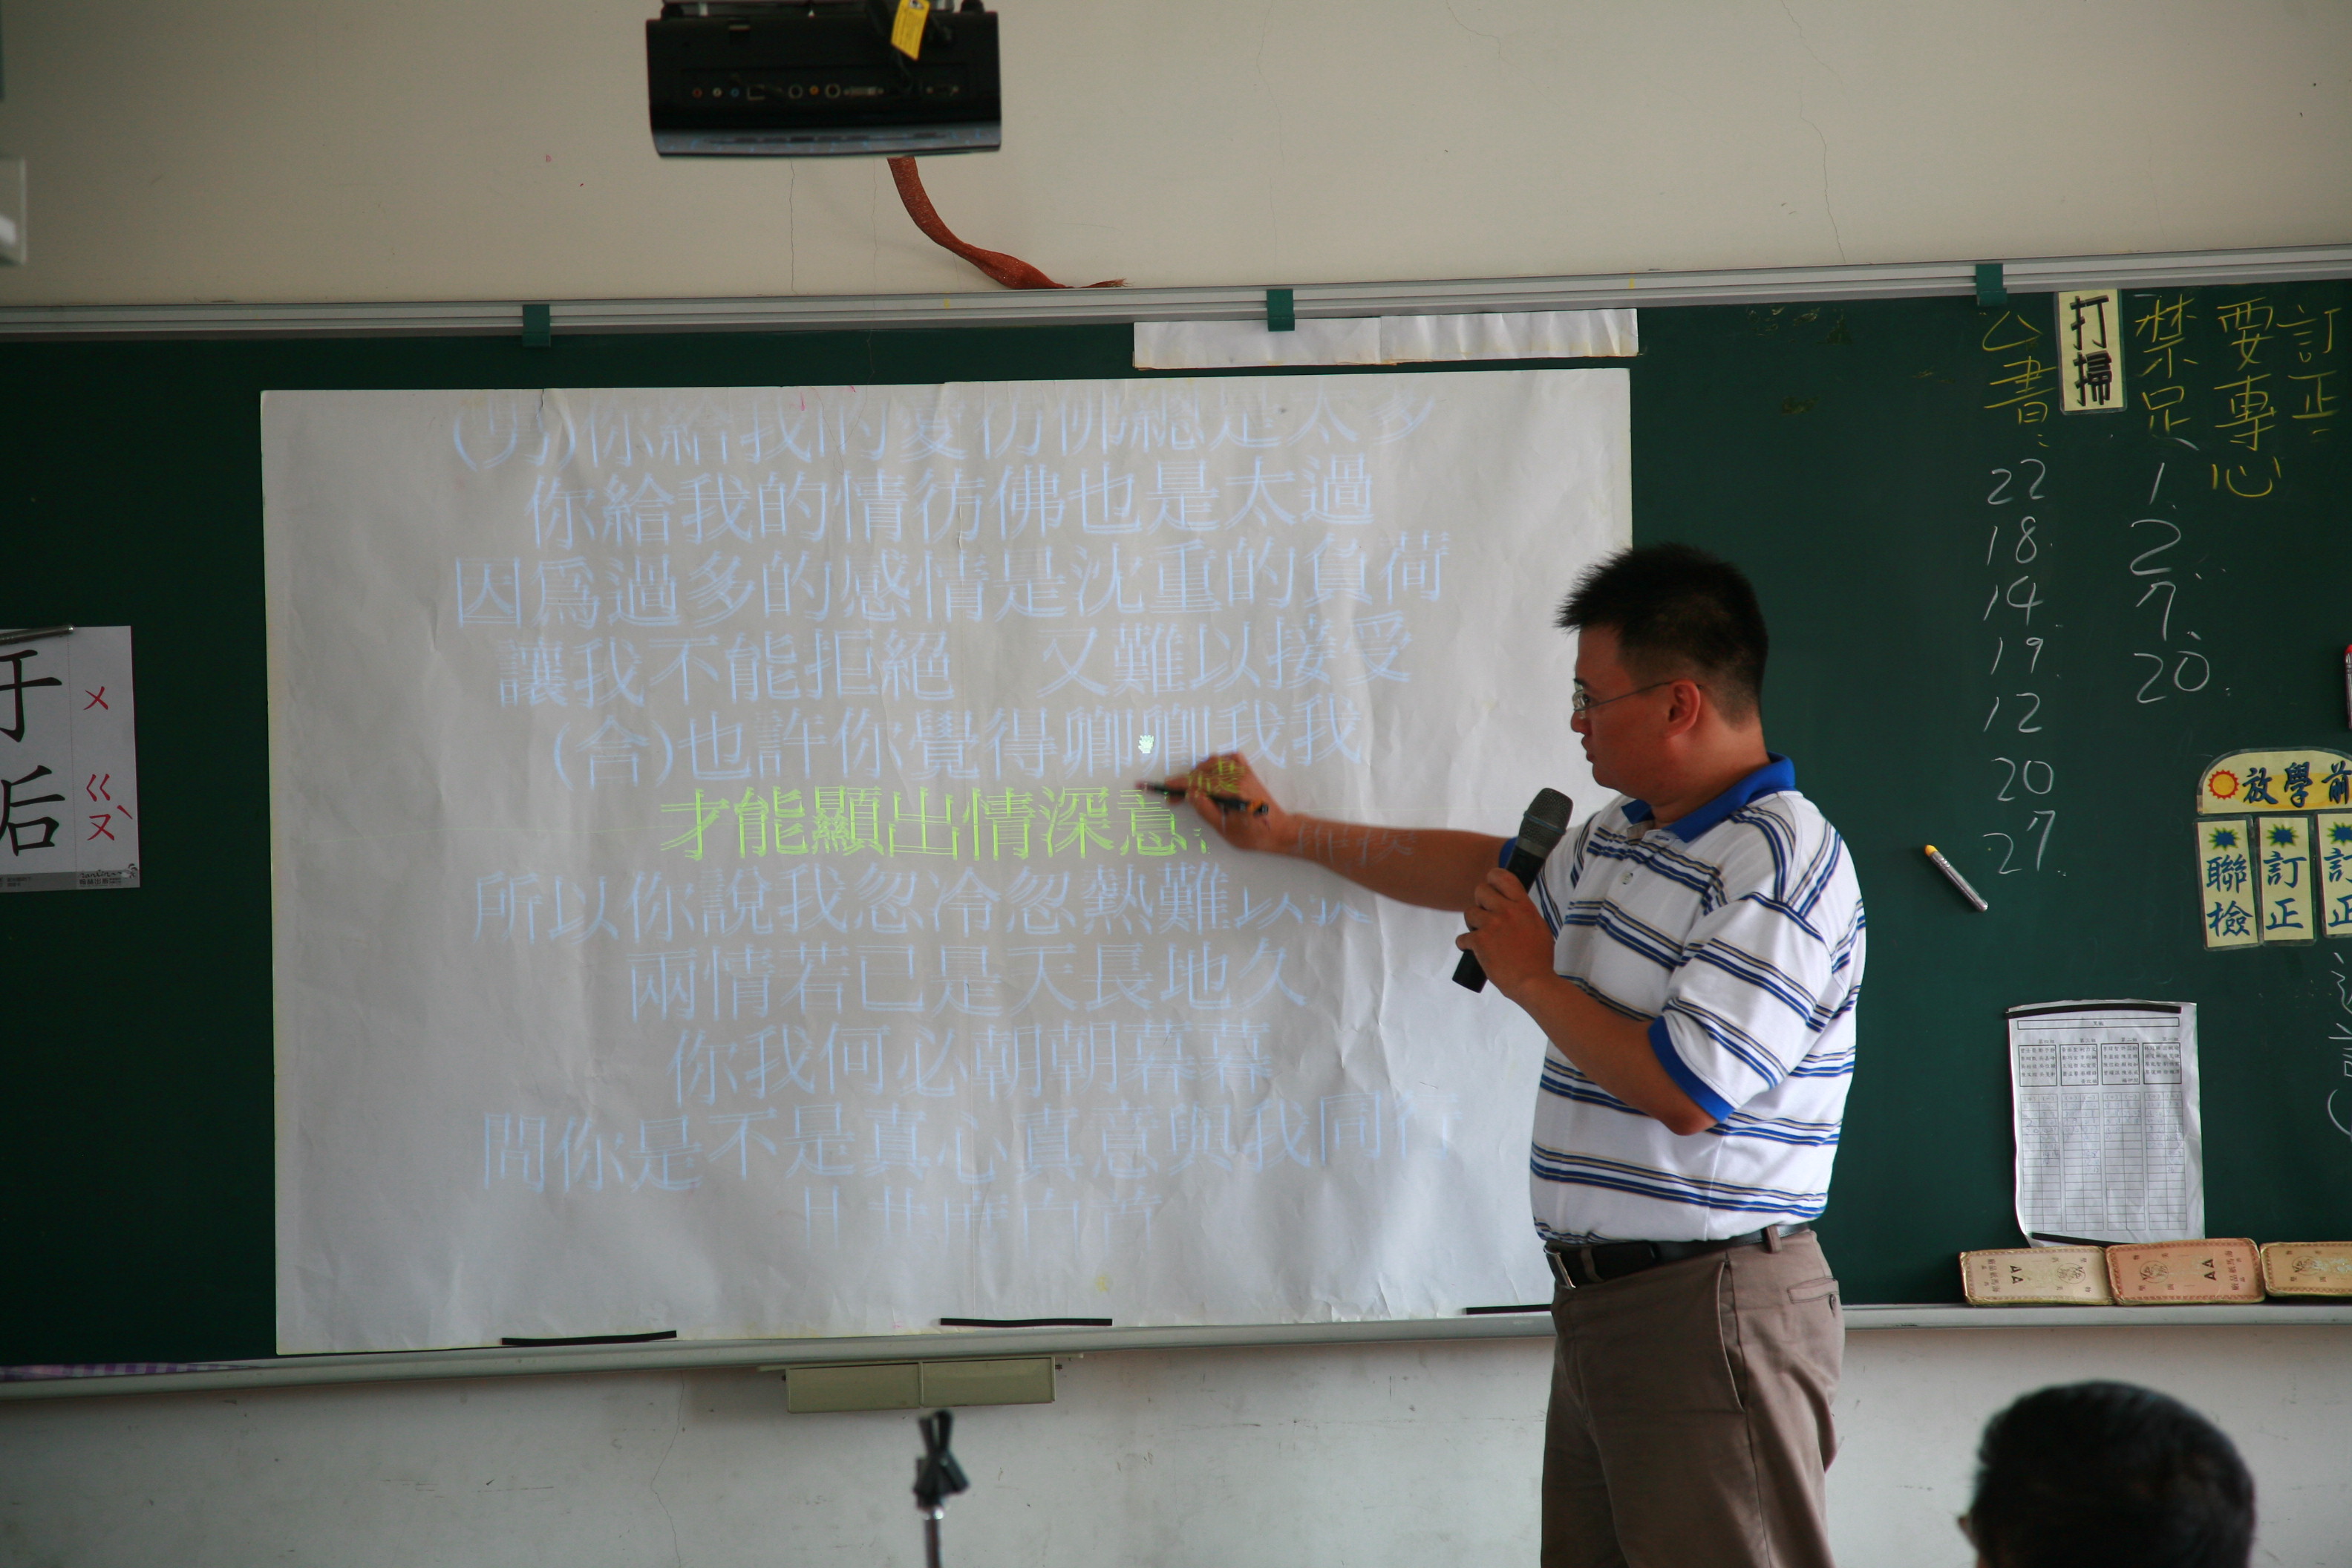 (男)你給我的愛彷彿總是太多
你給我的情彷彿也是太過
因為過多的感情是沈重的負荷
讓我不能拒絕 又難以接受
(合)也許你覺得卿卿我我
才能顯出情深意濃
所以你說我忽冷忽熱難以
兩情若已是天長地久
你我何必朝朝暮暮
問你是不是真心真意與我同行
訂正
要專心
禁足
1.
2
7.
20.
打掃
書:
22
18.
14
19.
12
20
27.
放學前
聯檢
訂正
訂正
ㄨ
后
ㄍㄡˋ